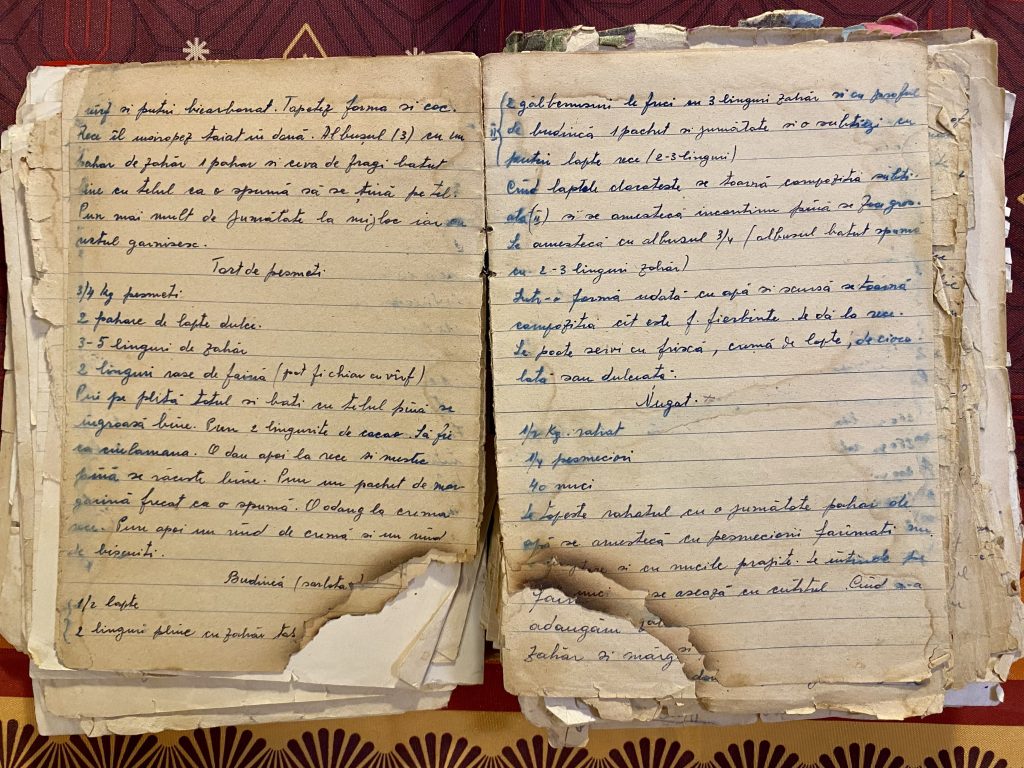 vîrf si putin bicarbonat. Tapetez forma si coc.
Rece îl umpez taiat in două. Albusul (3) cu un
pahar de zahăr 1 pahar si ceva de fragi batut
bine cu telul ca o spumă să se țină pe tel.
Pun mai mult de jumătate la mijloc iar cu
restul garnisesc.
Tort de pesmeti
3/4 Kg pesmeti
2 pahare de lapte dulce.
3-5 linguri de zahăr
2 linguri rase de faină (pot fi chiar cu vîrf)
Pui pe plită totul si bati cu telul pînă se
îngroasă bine. Pun 2 lingurite de cacao. Să fie
ca smîntana. O dau apoi la rece si mestec
pînă se răceste bine. Pun un pachet de mar
garină frecat ca o spumă. O adaug la crema
rece. Pun apoi un rînd de cremă si un rînd
de biscuiti.
Budincă (sarlota)
1/2 lapte
2 linguri pline cu zahăr
(2 gălbenusuri le freci cu 3 linguri zahăr si cu praful
II de budincă 1 pachet si jumătate si o subtiezi cu
putin lapte rece (2-3 linguri)
Cînd laptele clocoteste se toarnă compozitia subti
ată (II) si se amestecă incontinu pînă se face gros.
Se amestecă cu albusul 3/4 (albusul batut spumă
cu 2-3 linguri zahăr)
Intr-o formă udată cu apă si scursă se toarnă
compozitia cît este f. fierbinte. Se dă la rece.
Se poate servi cu friscă, cremă de lapte, de cioco
lată sau dulceată.
Nugat.
1/2 Kg. rahat
1/4 pesmeciori
40 nuci
Se topeste rahatul cu o jumătate pahar de
apă se amestecă cu pesmeciorii farimati
si cu nucile prajite. Se intinde pe
se asează cu cutitul. Cînd
adaugăm
zahăr si marg si